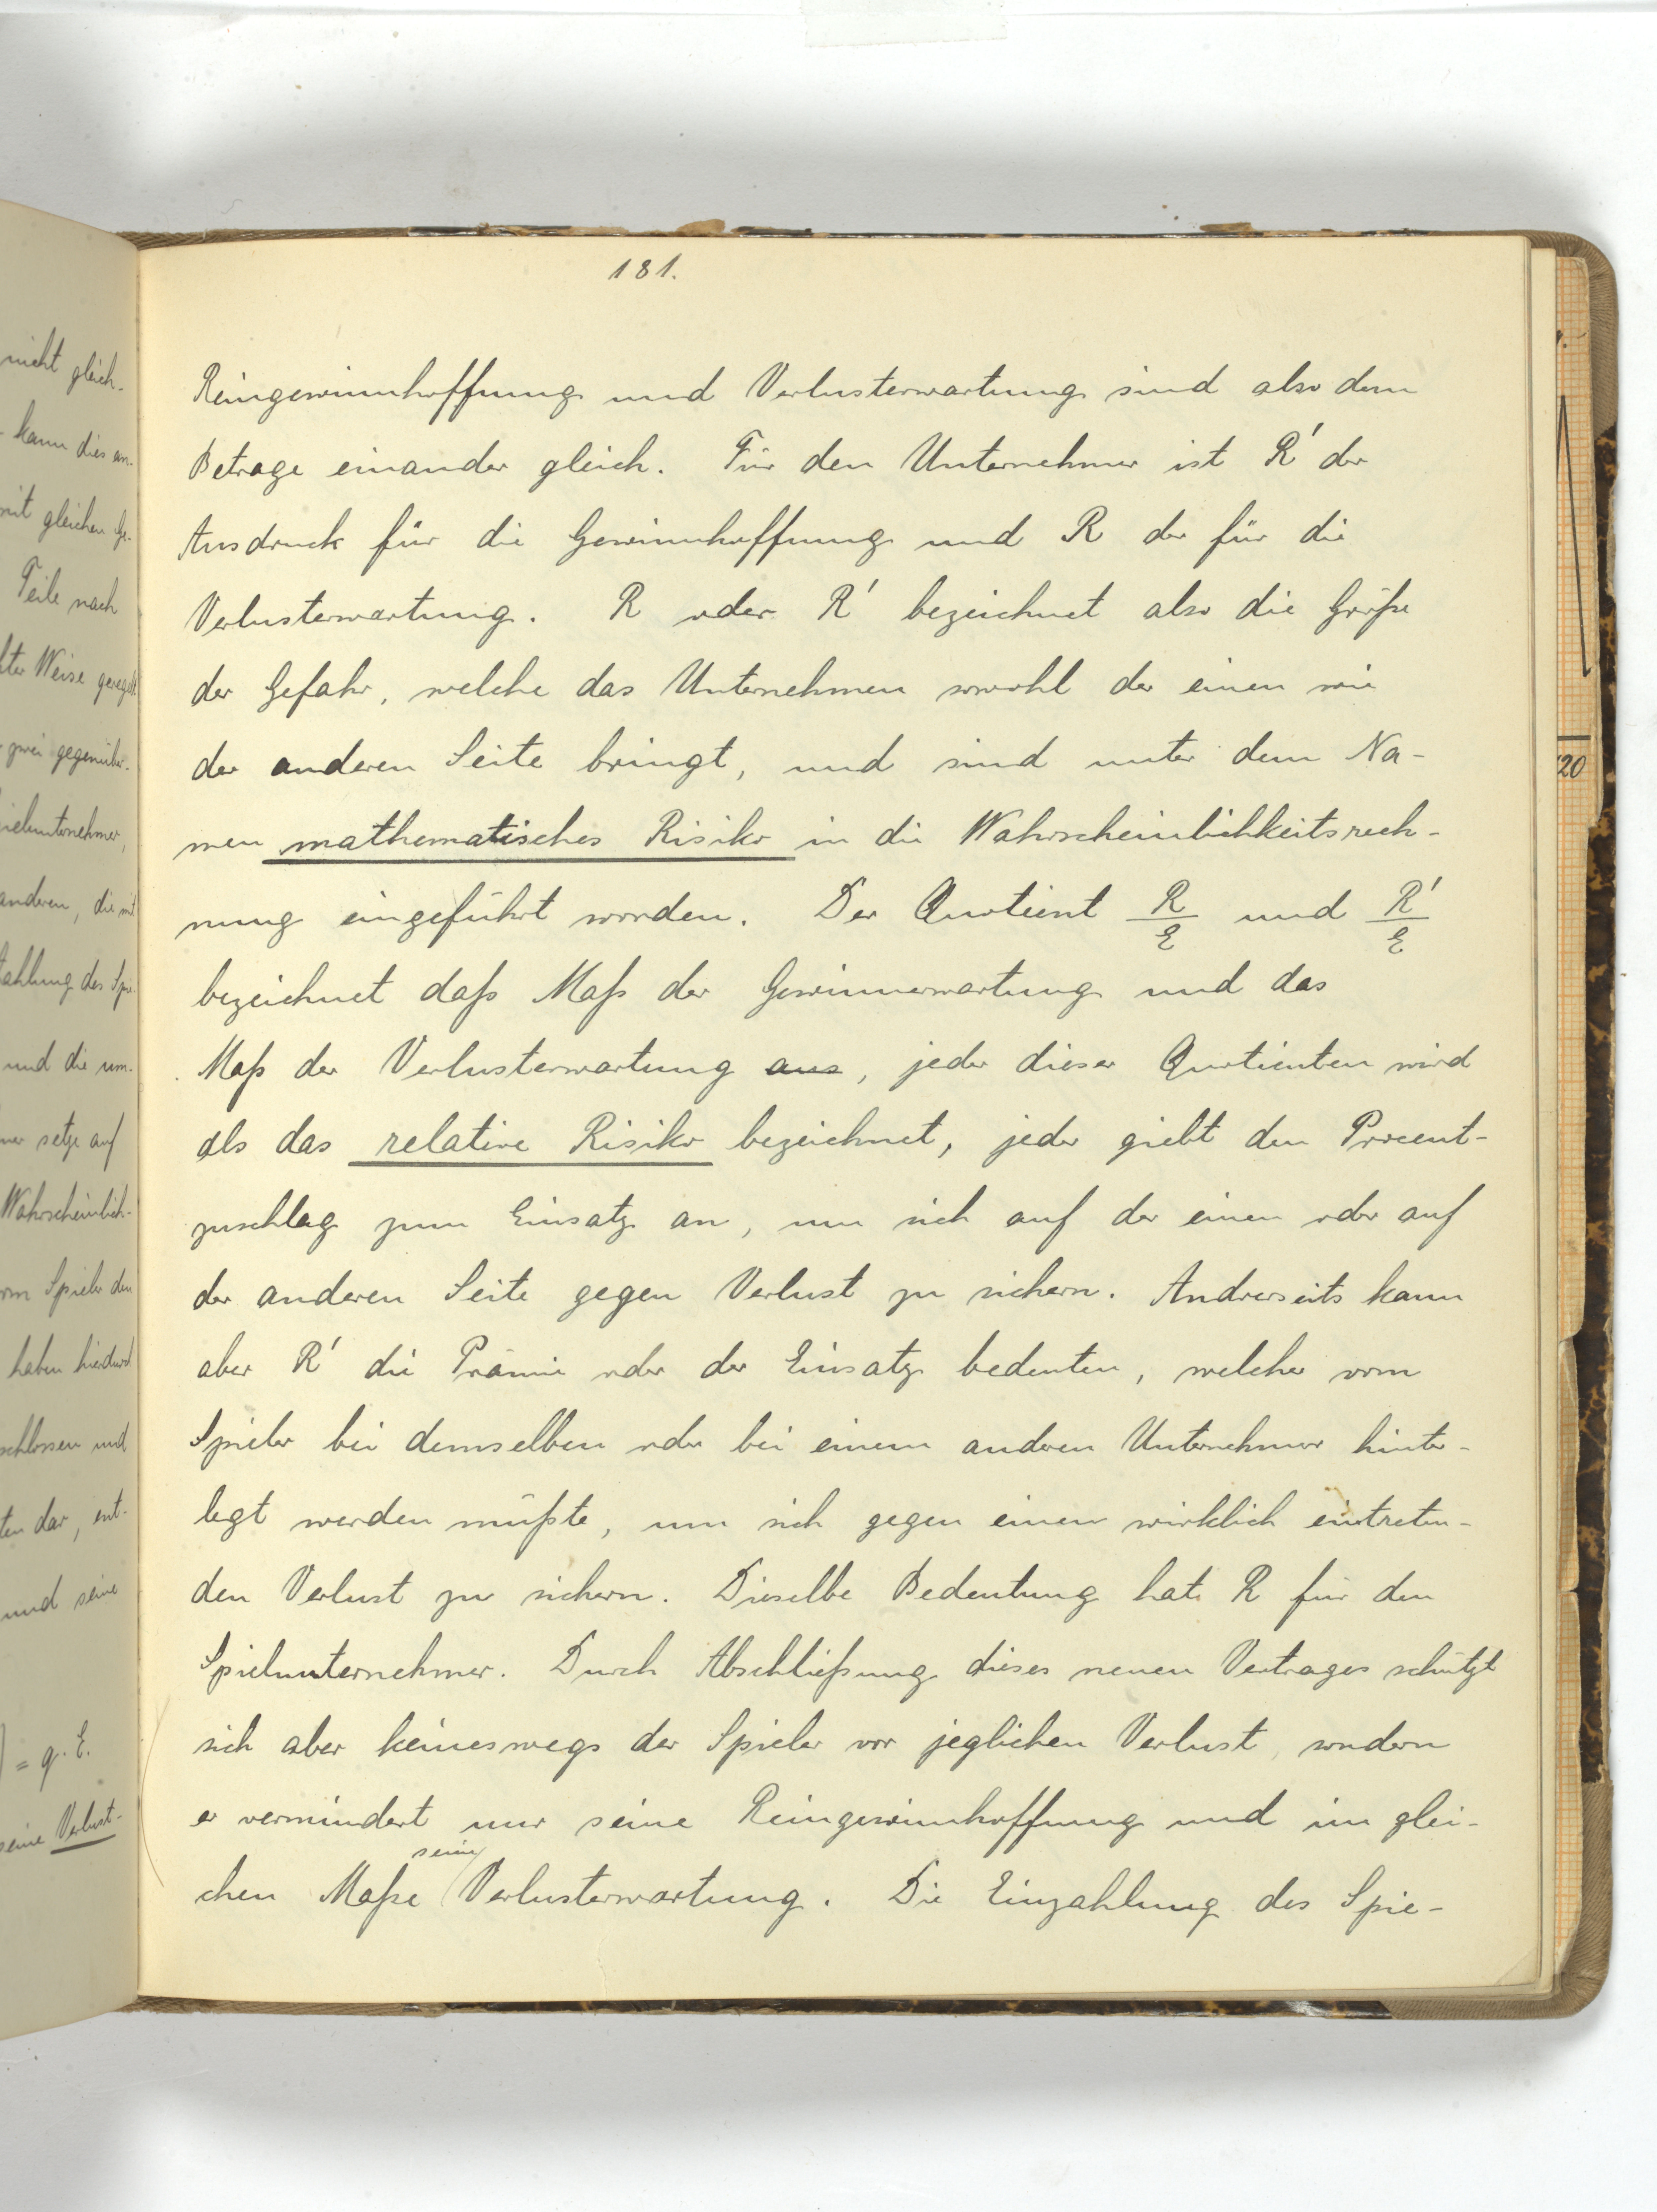 181.
Reingewinnhoffnung und Verlusterwartung sind also dem
Betrage einander gleich. Für den Unternehmer ist R' der
Ausdruck für die Gewinnhoffnung und R der für die
Verlusterwartung. R oder R' bezeichnet also die Größe
der Gefahr, welche das Unternehmen sowohl der einen wie
der anderen Seite bringt, und sind unter dem Na-
men mathematisches Risiko in die Wahrscheinlichkeitsrech-
nung eingeführt worden. Der Quotient R/E und R'/E
bezeichnet daß Maß der Gewinnerwartung und das
Maß der Verlusterwartung aus, jeder dieser Quotienten wird
als das relative Risiko bezeichnet, jeder giebt den Procent-
zuschlag zum Einsatz an, um sich auf der einen oder auf
der anderen Seite gegen Verlust zu sichern. Andrerseits kann
aber R' die Prämie oder der Einsatz bedeuten, welcher vom
Spieler bei demselben oder bei einem anderen Unternehmer hinter-
legt werden müßte, um sich gegen einen wirklich eintreten-
den Verlust zu sichern. Dieselbe Bedeutung hat R für den
Spielunternehmer. Durch Abschließung dieses neuen Vertrages schützt
sich aber keineswegs der Spieler vor jeglichen Verlust, sondern
er vermindert nur seine Reingewinnhoffnung und im glei-
chen Maße seine Verlusterwartung. Die Einzahlung des Spie-
nicht gleich-
kann dies an-
mit gleichen Ge-
Teile nach
Weise geregelt
zwei gegenüber-
anderen, die mit
und die um-
setze auf
Wahrscheinlich-
Spieler den
haben hierdurch
und
dar, ent-
und seine
= q. E.
seine Verlust-
20